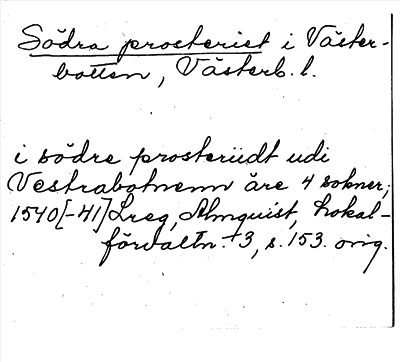 Södra prosteriet i Väster-
botten, Västerb. l.
i södre prosteriidt udi
Vestrabotnenn äre 4 sokner;
1540[-41] Lreg, Almquist, Lokal-
förvaltn. 3, s. 153. orig.